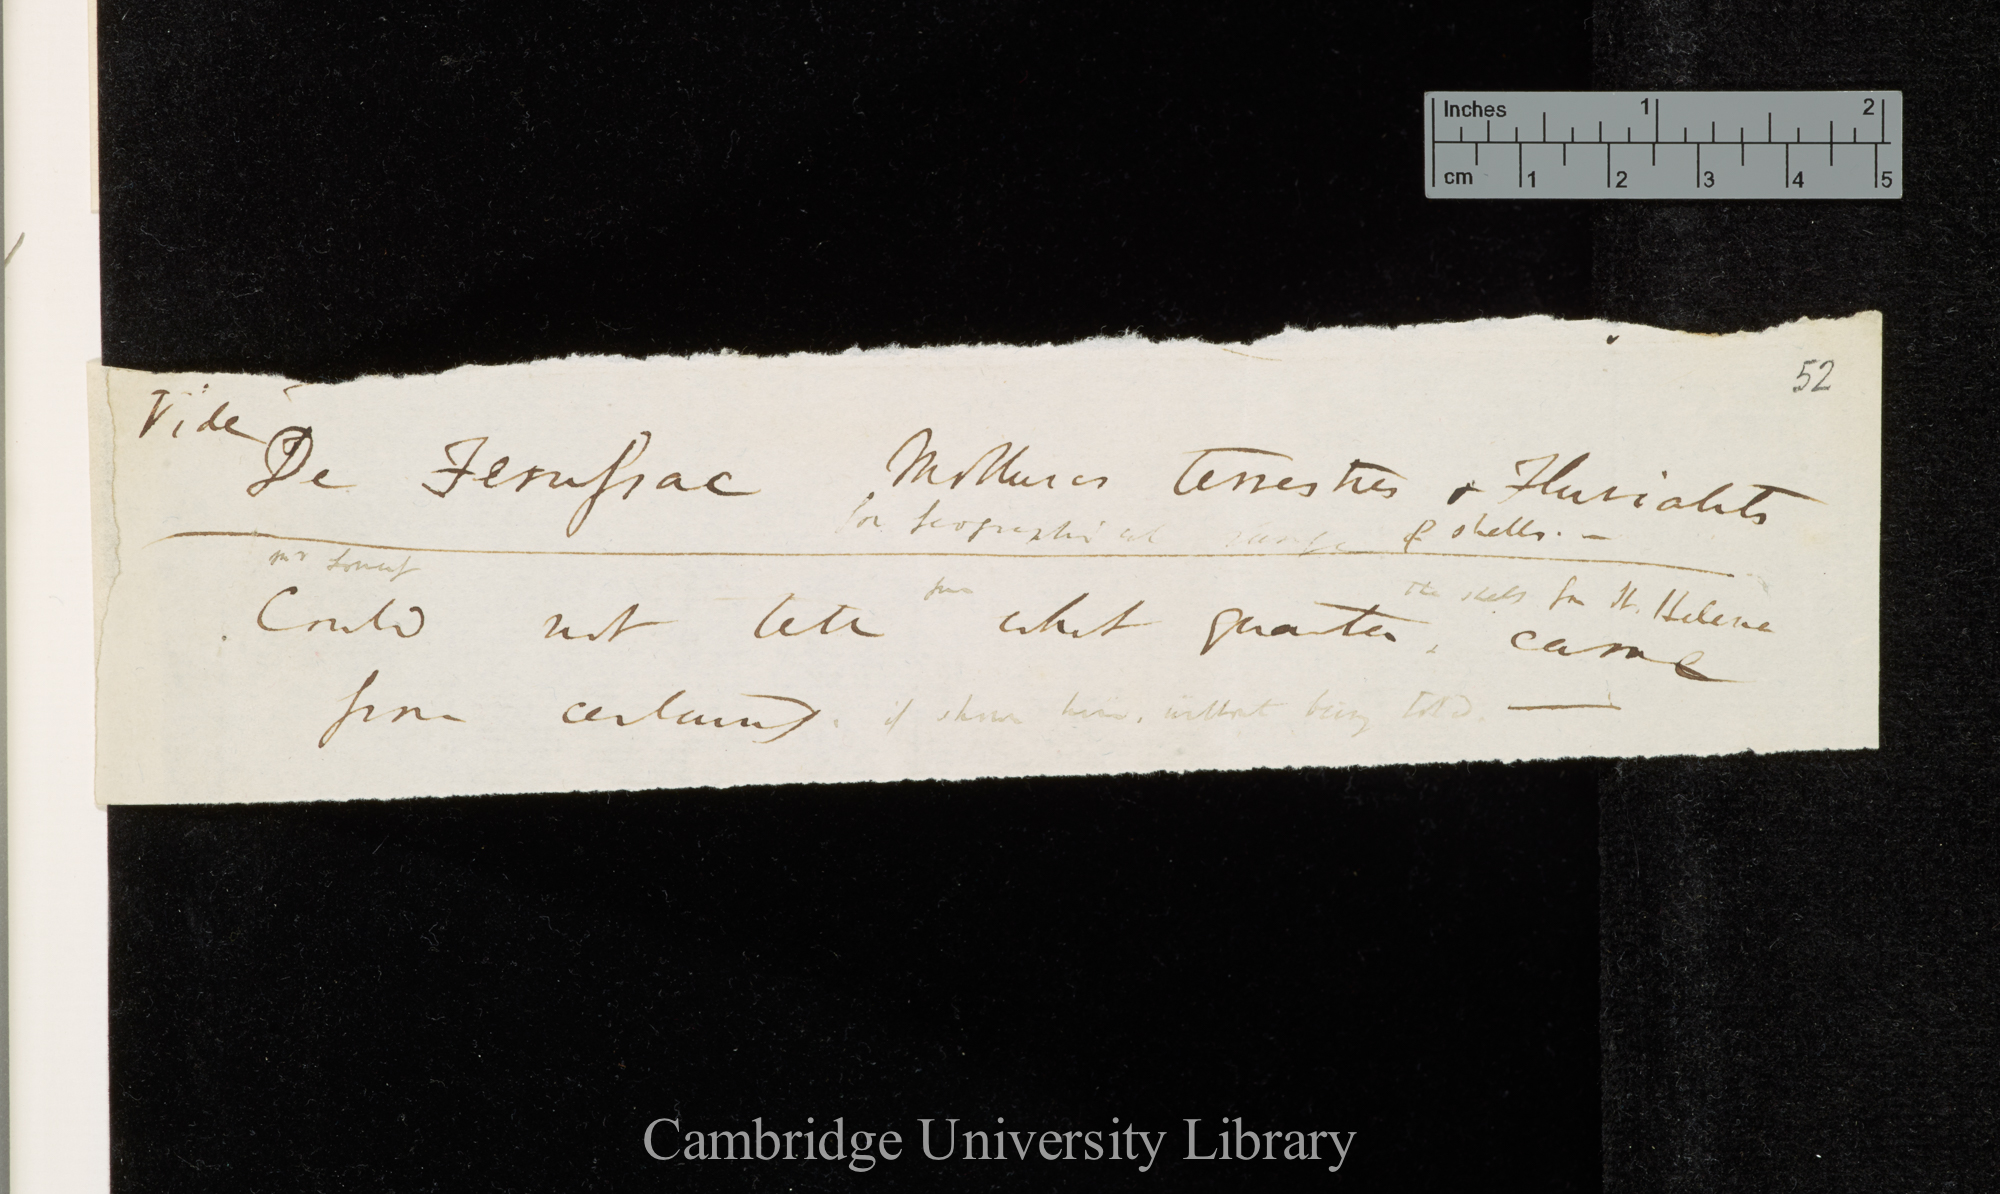 Inches 1 2
cm 1 2 3 4 5
52
Vide
De Ferussac Mollusces terrestres & Fluviatiles
for Geographical range of shells. —
Mr Sowerby
from the shells from St. Helena
Could not tell what quarter, came
from certainly. if shown him, without being told. —
Cambridge University Library